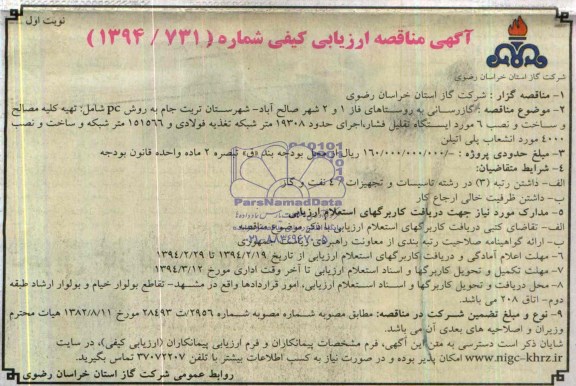 نوبت اول
آگهی مناقصه ارزیابی کیفی شماره ( ۷۳۱ / ۱۳۹۴ )
شرکت گاز استان خراسان رضوی
۱- مناقصه گزار : شرکت گاز استان خراسان رضوی
۲- موضوع مناقصه : گازرسانی به روستاهای فاز ۱ و ۲ شهر صالح آباد- شهرستان تربت جام به روش pc شامل: تهیه کلیه مصالح
و ساخت و نصب ۶ مورد ایستگاه تقلیل فشار،اجرای حدود ۱۹۳۰۸ متر شبکه تغذیه فولادی و ۱۵۱۵۶۶ متر شبکه و ساخت و نصب
۴۰۰۰ مورد انشعاب پلی اتیلن
۳- مبلغ حدودی پروژه : -/۱۶۰/۰۰۰/۰۰۰/۰۰۰ ریال از محل بودجه بند «ق» تبصره ۲ ماده واحده قانون بودجه
۴- شرایط متقاضیان:
الف- داشتن رتبه (۳) در رشته تاسیسات و تجهیزات نفت و گاز
ب- داشتن ظرفیت خالی ارجاع کار
۵- مدارک مورد نیاز جهت دریافت کاربرگهای استعلام ارزیابی
الف- تقاضای کتبی دریافت کاربرگهای استعلام ارزیابی با ذکر موضوع مناقصه
ب- ارائه گواهینامه صلاحیت رتبه بندی از معاونت راهبردی ریاست جمهوری
۶- مهلت اعلام آمادگی و دریافت کاربرگهای استعلام ارزیابی از تاریخ ۱۳۹۴/۲/۱۹ تا ۱۳۹۴/۲/۲۹
۷- مهلت تکمیل و تحویل کاربرگها و اسناد استعلام ارزیابی تا آخر وقت اداری مورخ ۱۳۹۴/۳/۱۲
۸- محل دریافت و تحویل کاربرگها و اسناد استعلام ارزیابی، امور قراردادها واقع در مشهد- تقاطع بولوار خیام و بولوار ارشاد طبقه
دوم- اتاق ۲۰۸ می باشد.
۹- نوع و مبلغ تضمین شرکت در مناقصه: مطابق مصوبه شماره مصوبه شماره ۲۹۵۶/ت ۲۸۴۹۳ مورخ ۱۳۸۲/۸/۱۱ هیات محترم
وزیران و اصلاحیه های بعدی آن می باشد.
شایان ذکر است دسترسی به متن این آگهی، فرم مشخصات پیمانکاران و فرم ارزیابی پیمانکاران (ارزیابی کیفی)، در سایت
www.nigc-khrz.ir امکان پذیر بوده و در صورت نیاز به کسب اطلاعات بیشتر با تلفن ۳۷۰۷۲۲۰۷ تماس بگیرید.
روابط عمومی شرکت گاز استان خراسان رضوی
ParsNamadData